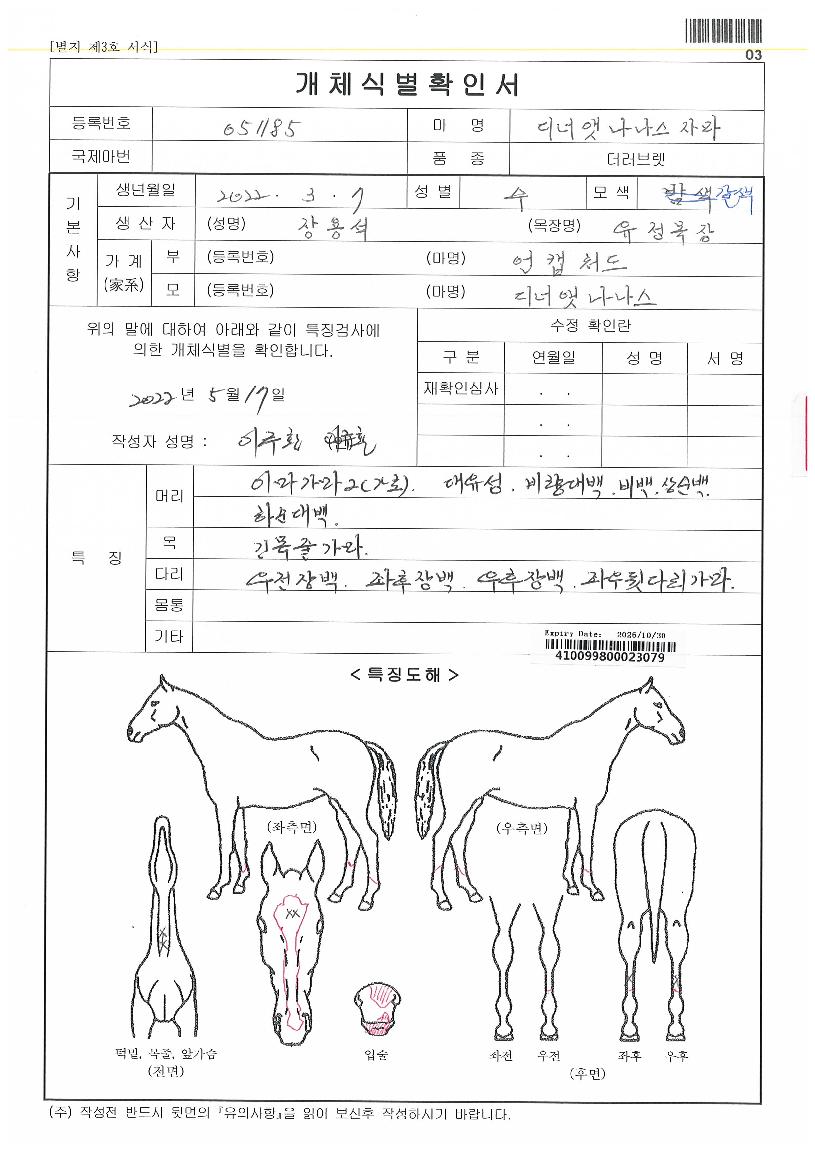 [별지 제3호 서식]
03
개체식별확인서
등록번호 051185 마 명 디너앳나나스자라
국제마번 품 종 더러브렛
기본사항
생년월일 2022 . 3 . 7 성 별 수 모 색 밤색 갈색
생 산 자 (성명) 장용석 (목장명) 유정목장
가 계 (家系)
부 (등록번호) (마명) 언캡쳐드
모 (등록번호) (마명) 디너앳나나스
위의 말에 대하여 아래와 같이 특징검사에
의한 개체식별을 확인합니다.
2022 년 5 월 17 일
작성자 성명 :
수정 확인란
구 분 연월일 성 명 서 명
재확인심사 . .
. .
. .
특 징
머리 이마가마2(가로). 대유성. 비량대백. 비백. 상순백.
하순대백.
목 긴목줄가마.
다리 우전장백. 좌후장백. 우후장백. 좌우뒷다리가마.
몸통
기타
Expiry Date: 2026/10/30
410099800023079
< 특징도해 >
(좌측면) (우측면)
턱밑, 목줄, 앞가슴 입술 좌전 우전 좌후 우후
(전면) (후면)
(수) 작성전 반드시 뒷면의 『유의사항』을 읽어 보신후 작성하시기 바랍니다.